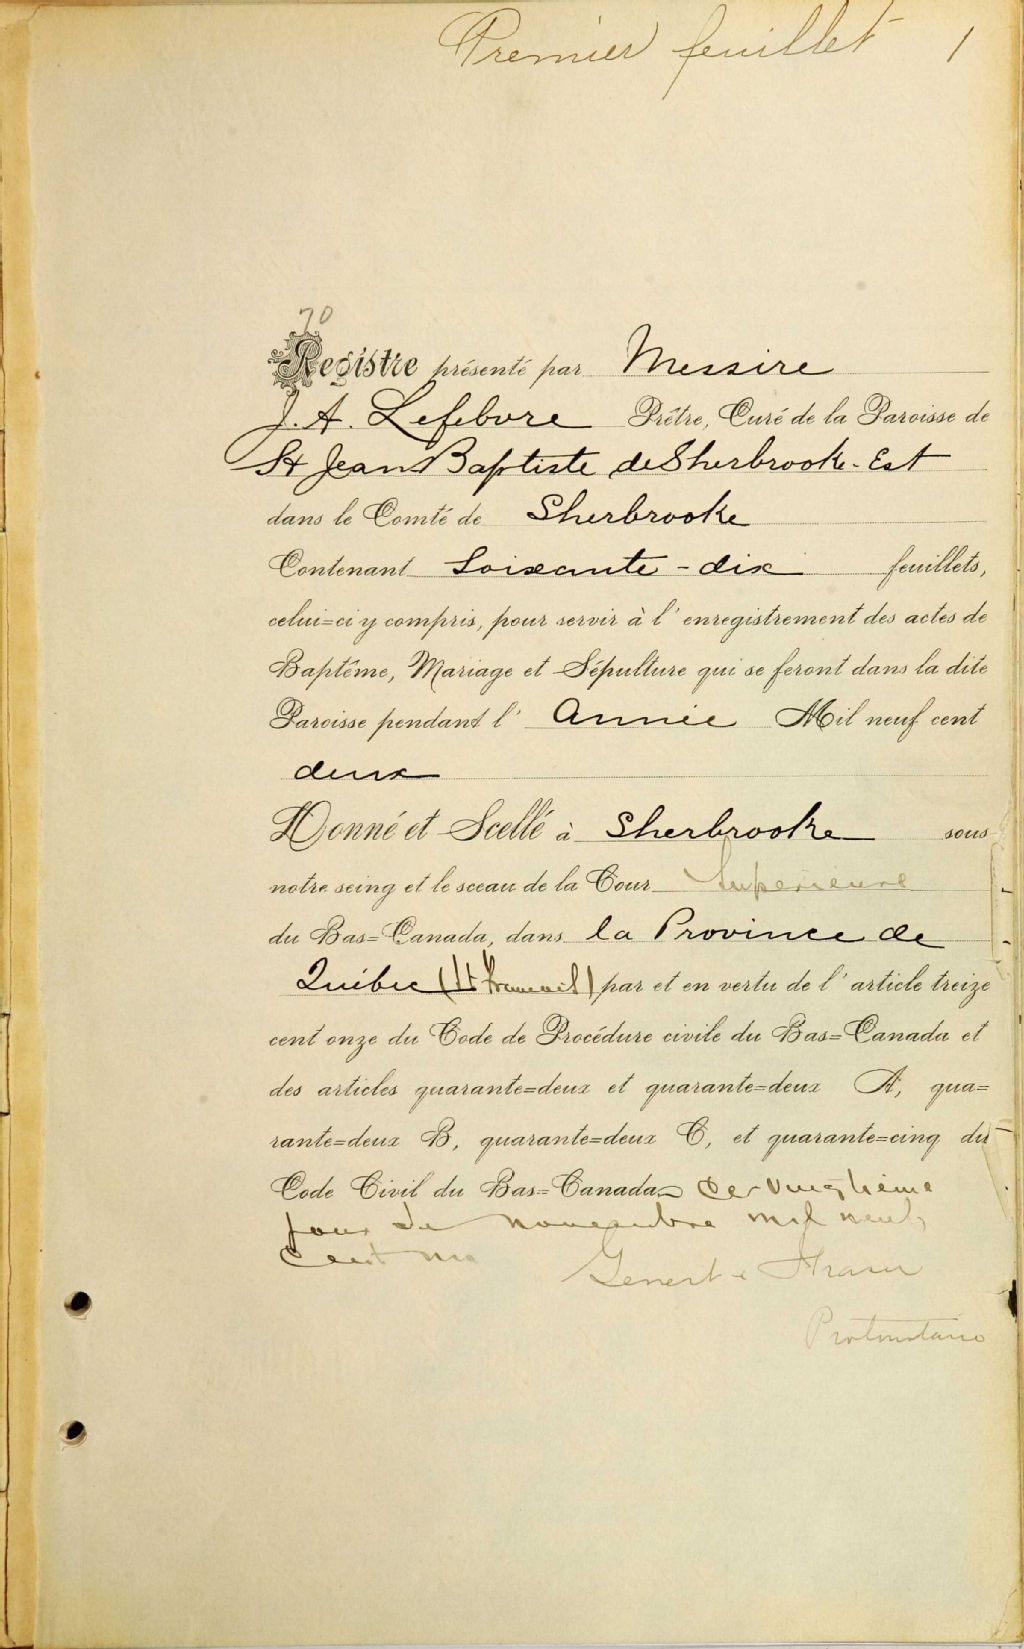 Premier feuillet 1
70
Registre présenté par Messire
J. A. Lefebvre Prêtre, Curé de la Paroisse de
St Jean Baptiste de Sherbrooke-Est
dans le Comté de Sherbrooke
Contenant Soixante-dix feuillets,
celui=ci y compris, pour servir à l'enregistrement des actes de
Baptême, Mariage et Sépulture qui se feront dans la dite
Paroisse pendant l'Année Mil neuf cent
deux
Donné et Scellé à Sherbrooke sous
notre seing et le sceau de la Cour Supérieure
du Bas=Canada, dans la Province de
Québec (St François) par et en vertu de l'article treize
cent onze du Code de Procédure civile du Bas=Canada et
des articles quarante=deux et quarante=deux A, qua=
rante=deux B, quarante=deux C, et quarante=cinq du
Code Civil du Bas=Canada Ce vingtième
jour de novembre mil neuf
cent
Protonotaire